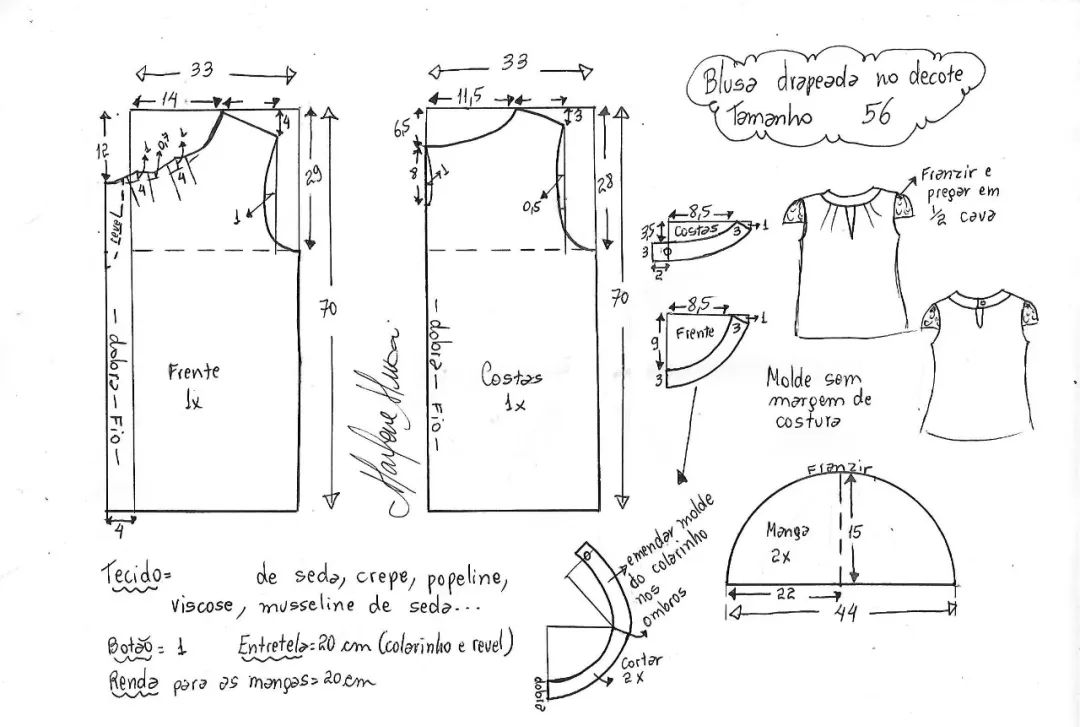 Blusa drapeada no decote
Tamanho 56
33
14
4
12
1
0,7
1
4
4
1
29
70
- dobra - Fio -
Frente
1x
4
33
11,5
3
6,5
8
1
0,5
28
70
- dobra - Fio -
Costas
1x
Marlene Mukai
8,5
3,5
Costas
3
1
3
2
8,5
9
Frente
3
1
3
Franzir e
pregar em
1/2 cava
Molde sem
margem de
costura
Franzir
Manga
2x
15
22
44
emendar molde
do colarinho
nos
ombros
Cortar
2x
dobra
Tecido=
de seda, crepe, popeline,
viscose, musseline de seda...
Botão = 1
Entretela=20 cm (colarinho e revel)
Renda para as mangas=20cm